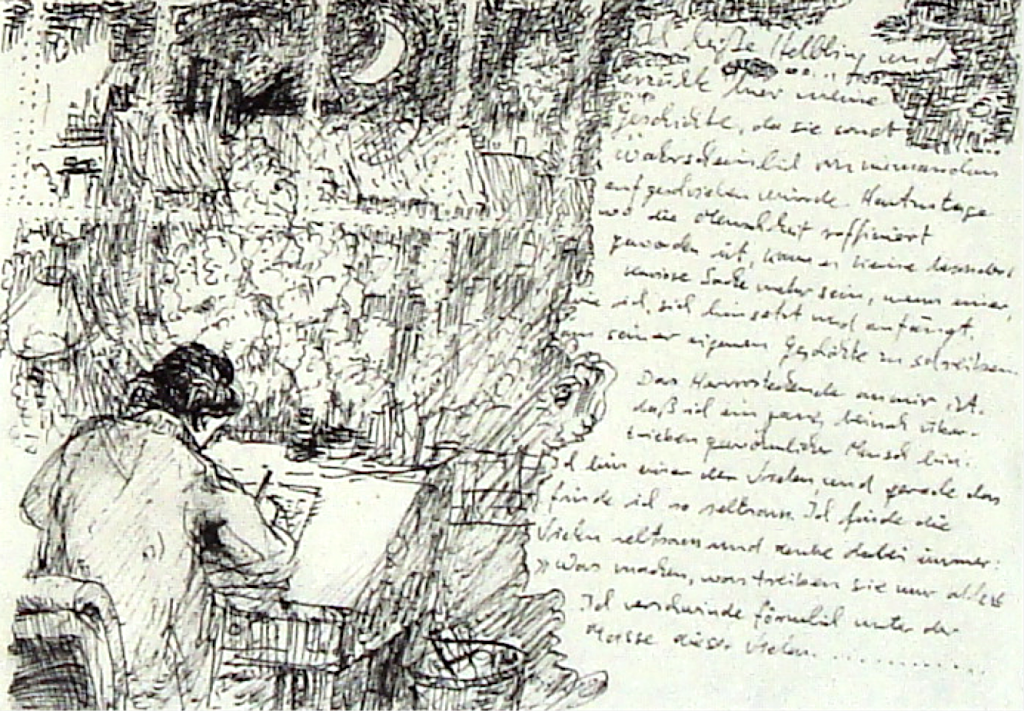 Ich heiße Helbling und
erzähle hier meine
Geschichte, da sie sonst
wahrscheinlich von niemandem
aufgeschrieben würde. Heutzutage
wo die Menschheit raffiniert
geworden ist, kann es keine besondere,
kuriose Sache mehr sein, wenn einer,
wie ich, sich hinsetzt und anfängt,
an seiner eigenen Geschichte zu schreiben.
Das Hervorstechende an mir ist,
daß ich ein ganz, beinah über-
trieben gewöhnlicher Mensch bin.
Ich bin einer der Vielen, und gerade das
finde ich so seltsam. Ich finde die
Vielen seltsam und denke dabei immer:
»Was machen, was treiben sie nur alle?«
Ich verschwinde förmlich unter der
Masse dieser Vielen..............